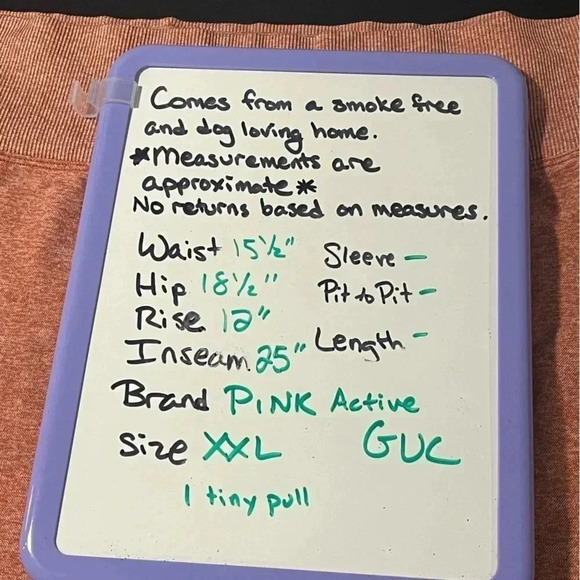 Comes from a smoke free
and dog loving home.
*Measurements are
approximate*
No returns based on measures.
Waist 15½" Sleeve -
Hip 18½" Pit to Pit -
Rise 12"
Inseam 25" Length -
Brand PINK Active
Size XXL GUC
1 tiny pull